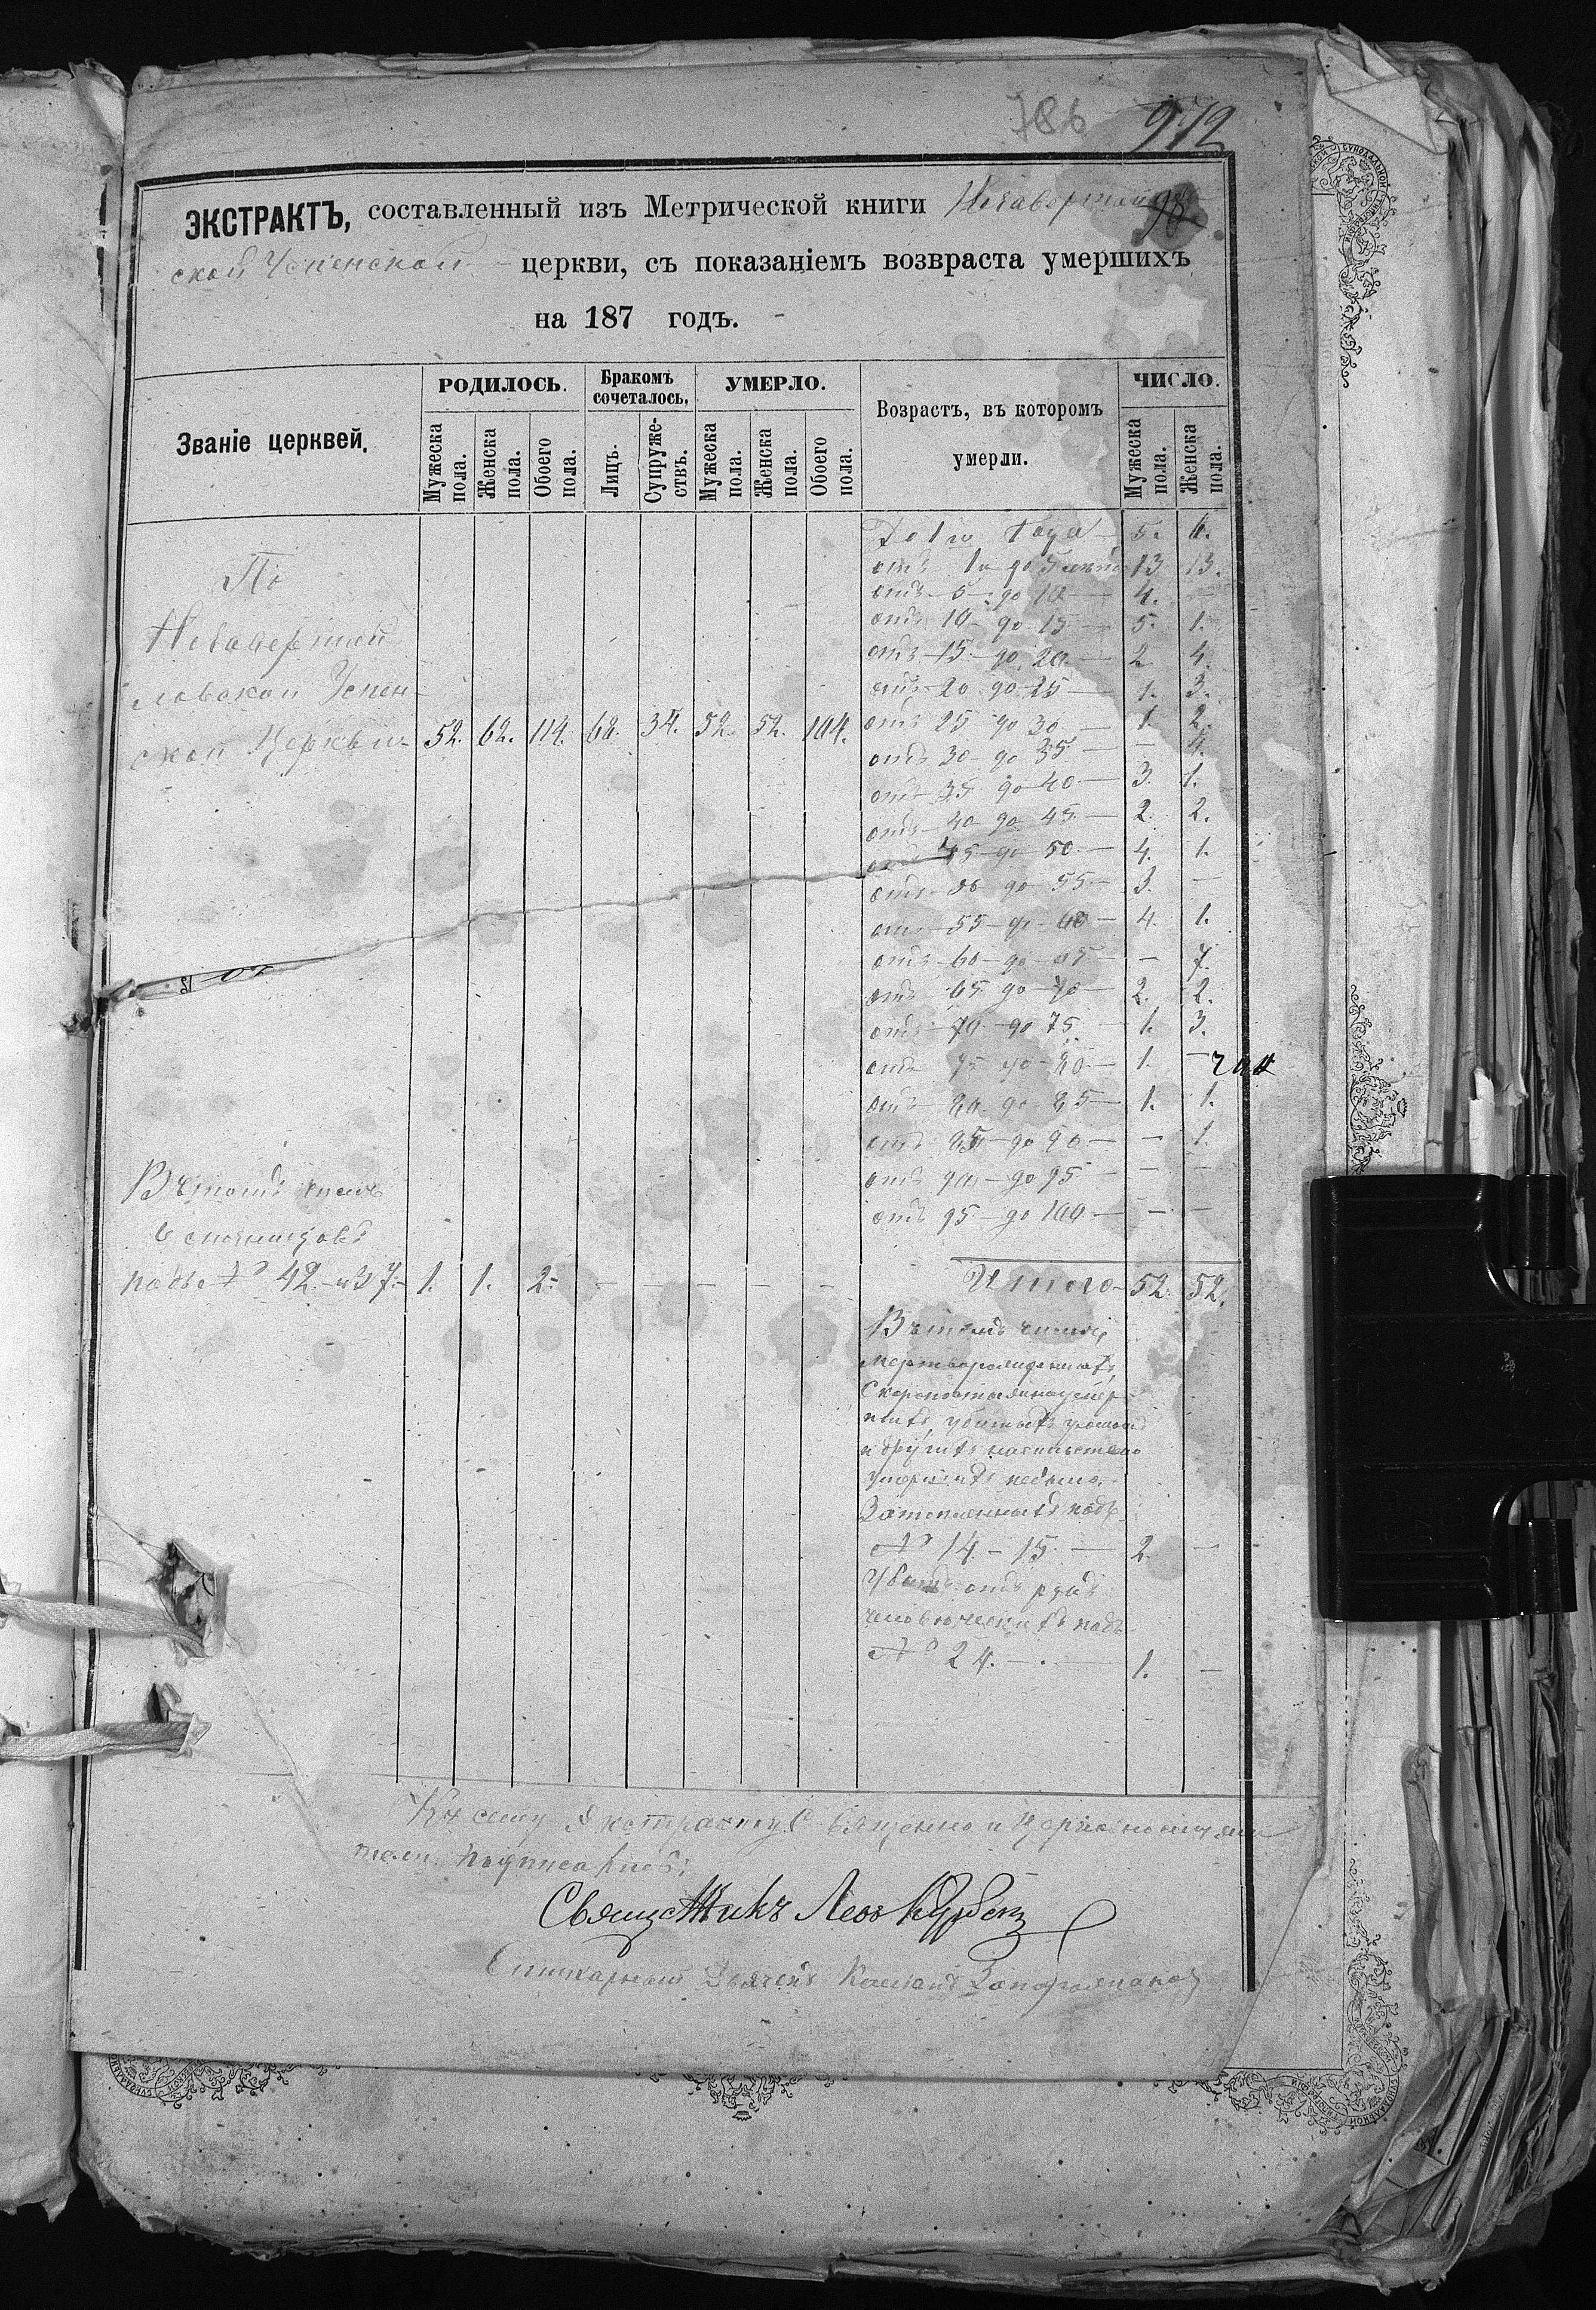 786 972
ЭКСТРАКТЪ, составленный изъ Метрической книги
ской Успенской церкви, съ показаніемъ возвраста умершихъ
на 187 годъ.
Званіе церквей.
РОДИЛОСЬ.
Бракомъ сочеталось.
УМЕРЛО.
Возрастъ, въ которомъ умерли.
ЧИСЛО.
Мужеска пола.
Женска пола.
Обоего пола.
Лицъ.
Супружествъ.
Мужеска пола.
Женска пола.
Обоего пола.
Мужеска пола.
Женска пола.
По
Успен-
ской Церкви 52. 62. 114. 68. 34. 52. 52. 104.
До 1го года 5. 6.
отъ 1го до 5 13 13.
отъ 5 до 10 4. —
отъ 10 до 15 5. 1.
отъ 15 до 20 2. 4.
отъ 20 до 25 1. 3.
отъ 25 до 30 1. 2.
отъ 30 до 35 — 4.
отъ 35 до 40 3. 1.
отъ 40 до 45 2. 2.
отъ 45 до 50 4. 1.
отъ 50 до 55 3. —
отъ 55 до 60 4. 1.
отъ 60 до 65 — 7.
отъ 65 до 70 2. 2.
отъ 70 до 75 1. 3.
отъ 75 до 80 1. —
отъ 80 до 85 1. 1.
отъ 85 до 90 — 1.
отъ 90 до 95 — —
отъ 95 до 100 — —
Итого 52. 52.
Въ томъ числѣ
подъ № 42 и 37 1. 1. 2. — — — — —
Въ томъ числѣ
мертворожденныхъ,
Скоропостижноумер-
шихъ, убитыхъ
и другихъ насильственно
умершихъ
подъ
№ 14 – 15 — 2. —
отъ рукъ
человѣческихъ подъ
№ 24. — 1. —
Къ сему Экстракту Священно и Церковнослужи-
тели
Священникъ Левъ